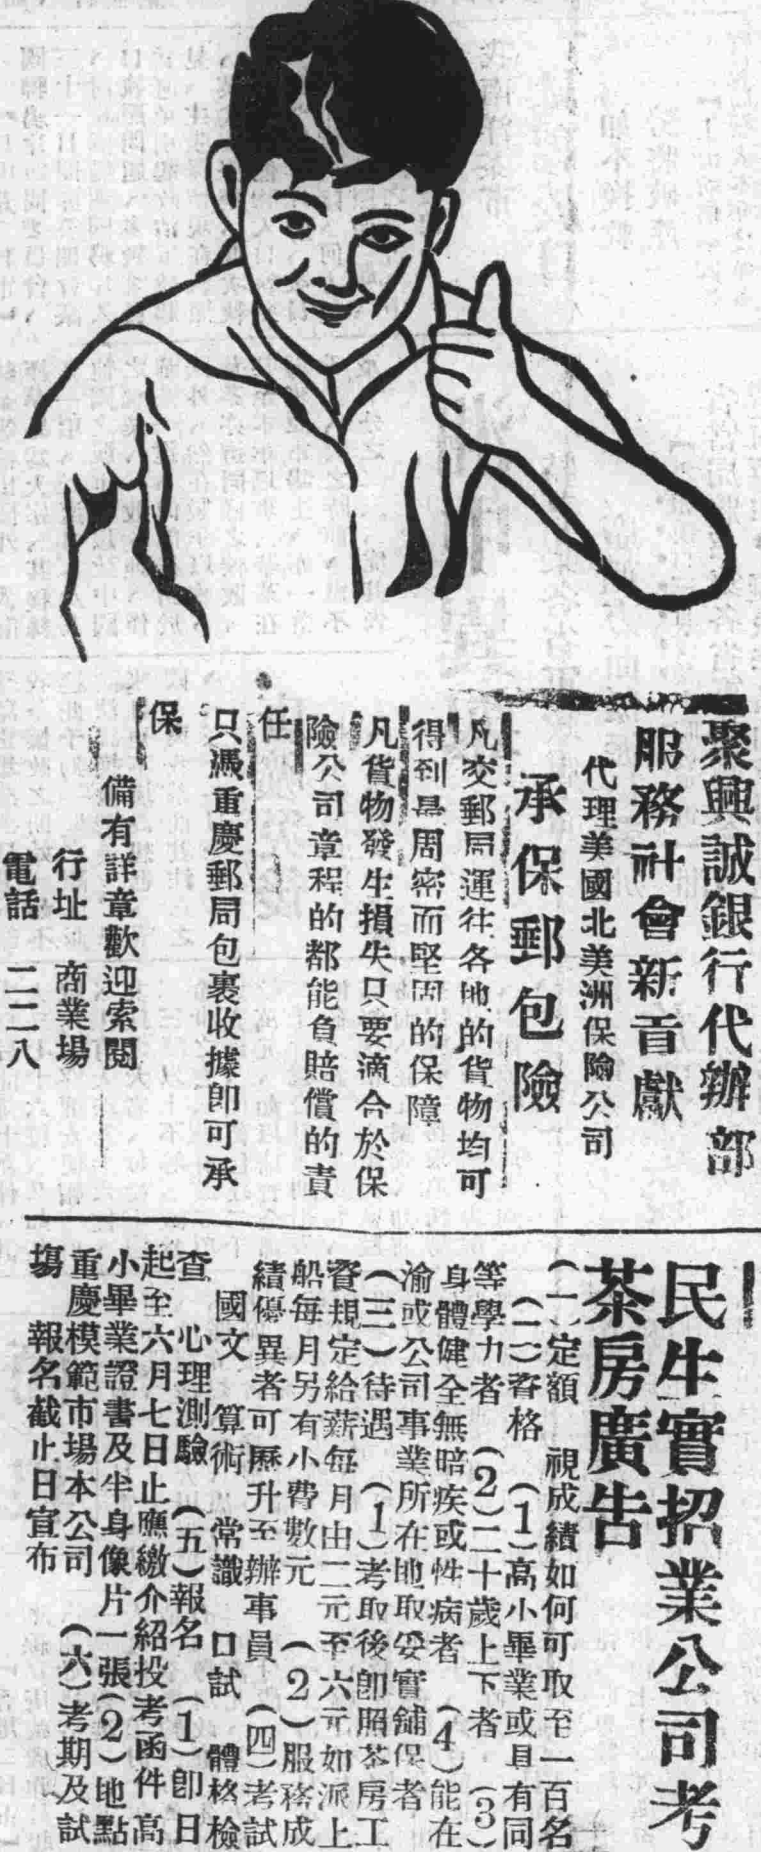 聚興誠銀行代辦部
服務社會新貢獻
代理美國北美洲保險公司
承保郵包險
凡交郵局運往各地的貨物均可
得到最周密而堅固的保障
凡貨物發生損失只要滴合於保
險公司章程的都能負賠償的責
任
只憑重慶郵局包裹收據卽可承
保
備有詳章歡迎索閱
行址 商業場
電話 二二八
民生實招業公司考
茶房廣告
(一)定額 視成績如何可取至一百名
(二)資格 (1)高小畢業或具有同
等學力者 (2)二十歲上下者 (3)
身體健全無暗疾或性病者 (4)能在
渝或公司事業所在地取妥實鋪保者
(三)待遇 (1)考取後卽照茶房工
資規定給薪每月由二元至六元如派上
船每月另有小費數元 (2)服務成
績優異者可歷升至辦事員 (四)考試
國文 算術 常識 口試 體格檢
查 心理測驗 (五)報名 (1)卽日
起至六月七日止應繳介紹投考函件高
小畢業證書及半身像片一張(2)地點
重慶模範市場本公司 (六)考期及試
塲 報名截止日宣布